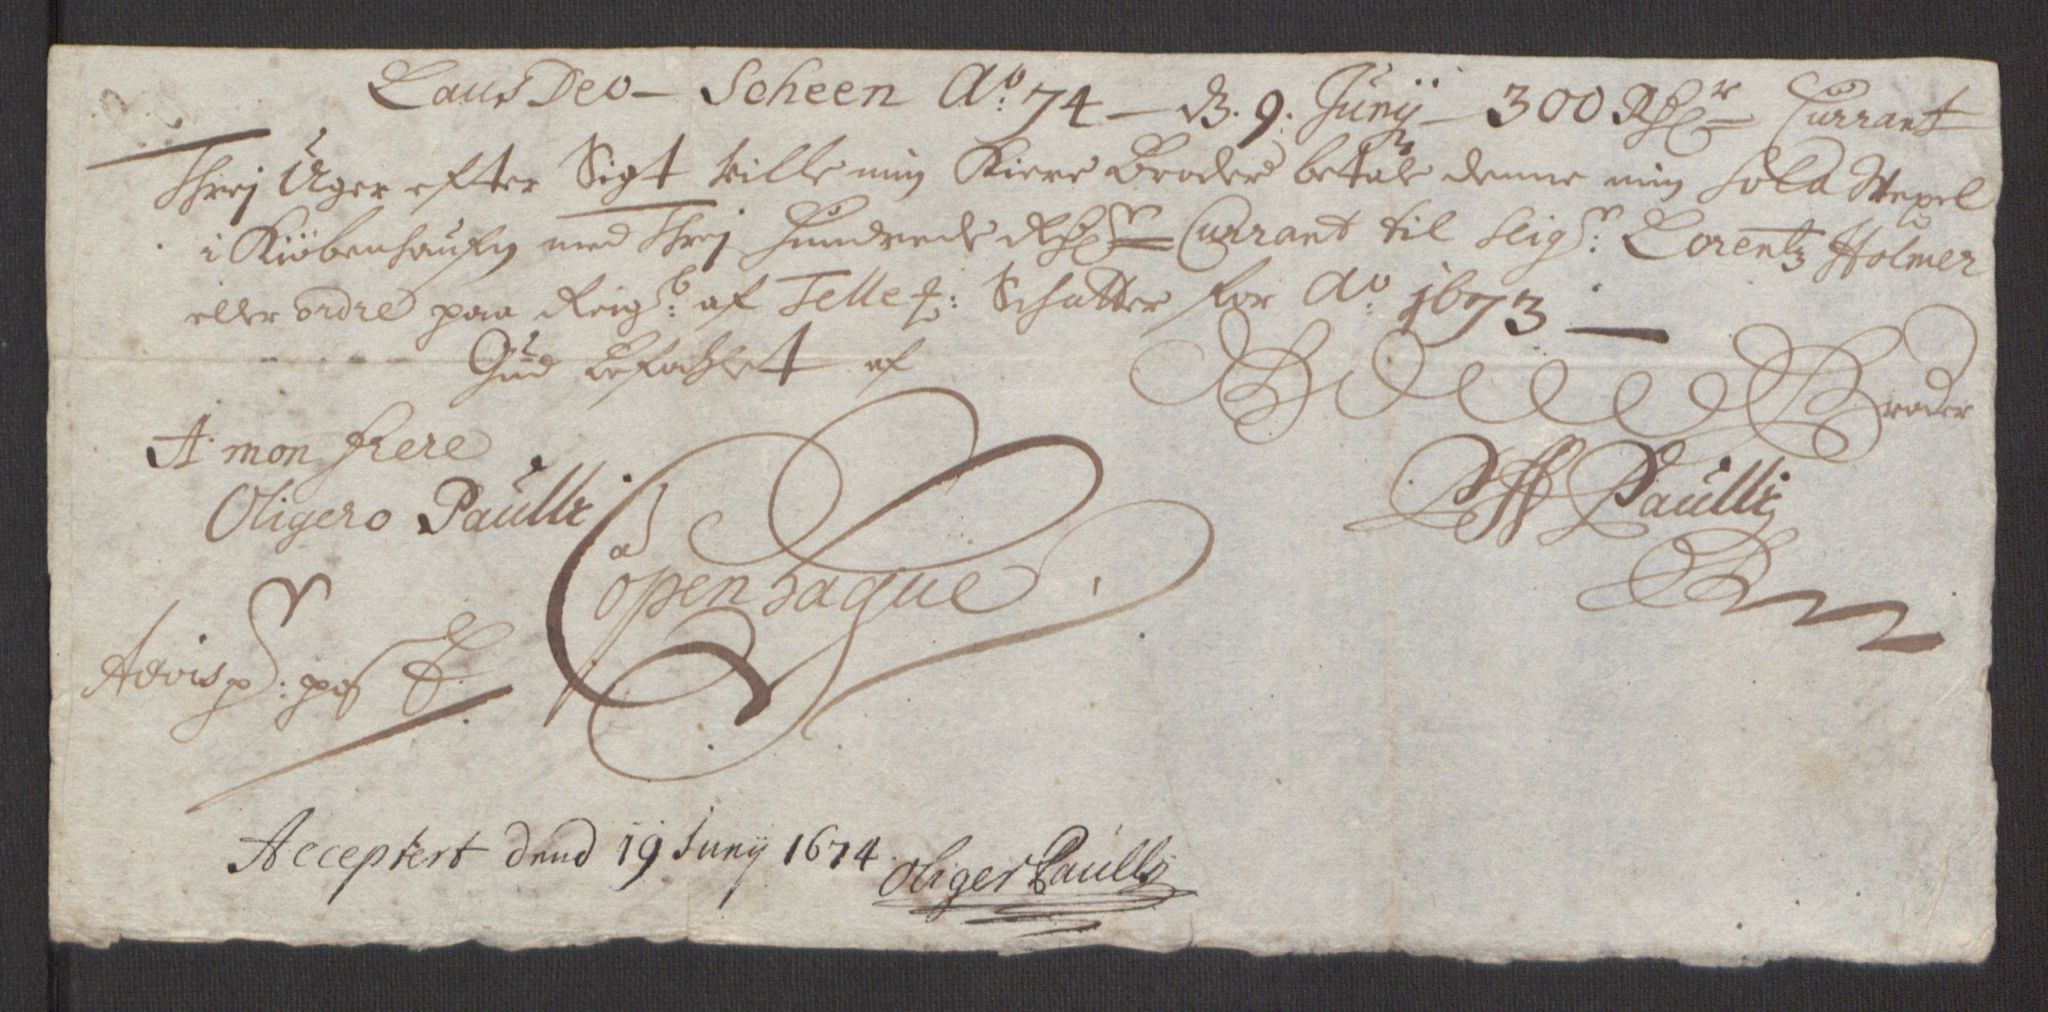 Laus Deo - Scheen Ao: 74 - d. 9. Junÿ - 300 Rdr Currant
Threj Uger efter Sigt wille min Kiere Broder betale denne min Sola Wexel
i Kiøbenhaufn med Threj Hundrede Rdr Currant til Seigr: Lorentz Holmer
eller ordre paa Reigb: af Telle: Schatter for Ao: 1673
Gud befahlet af
Broder
A mon frere
Oligero Paulli
Paulli
a
Copenhague
Advis p: post
Acceptert dend 19 Junÿ 1674 Oliger Paulli